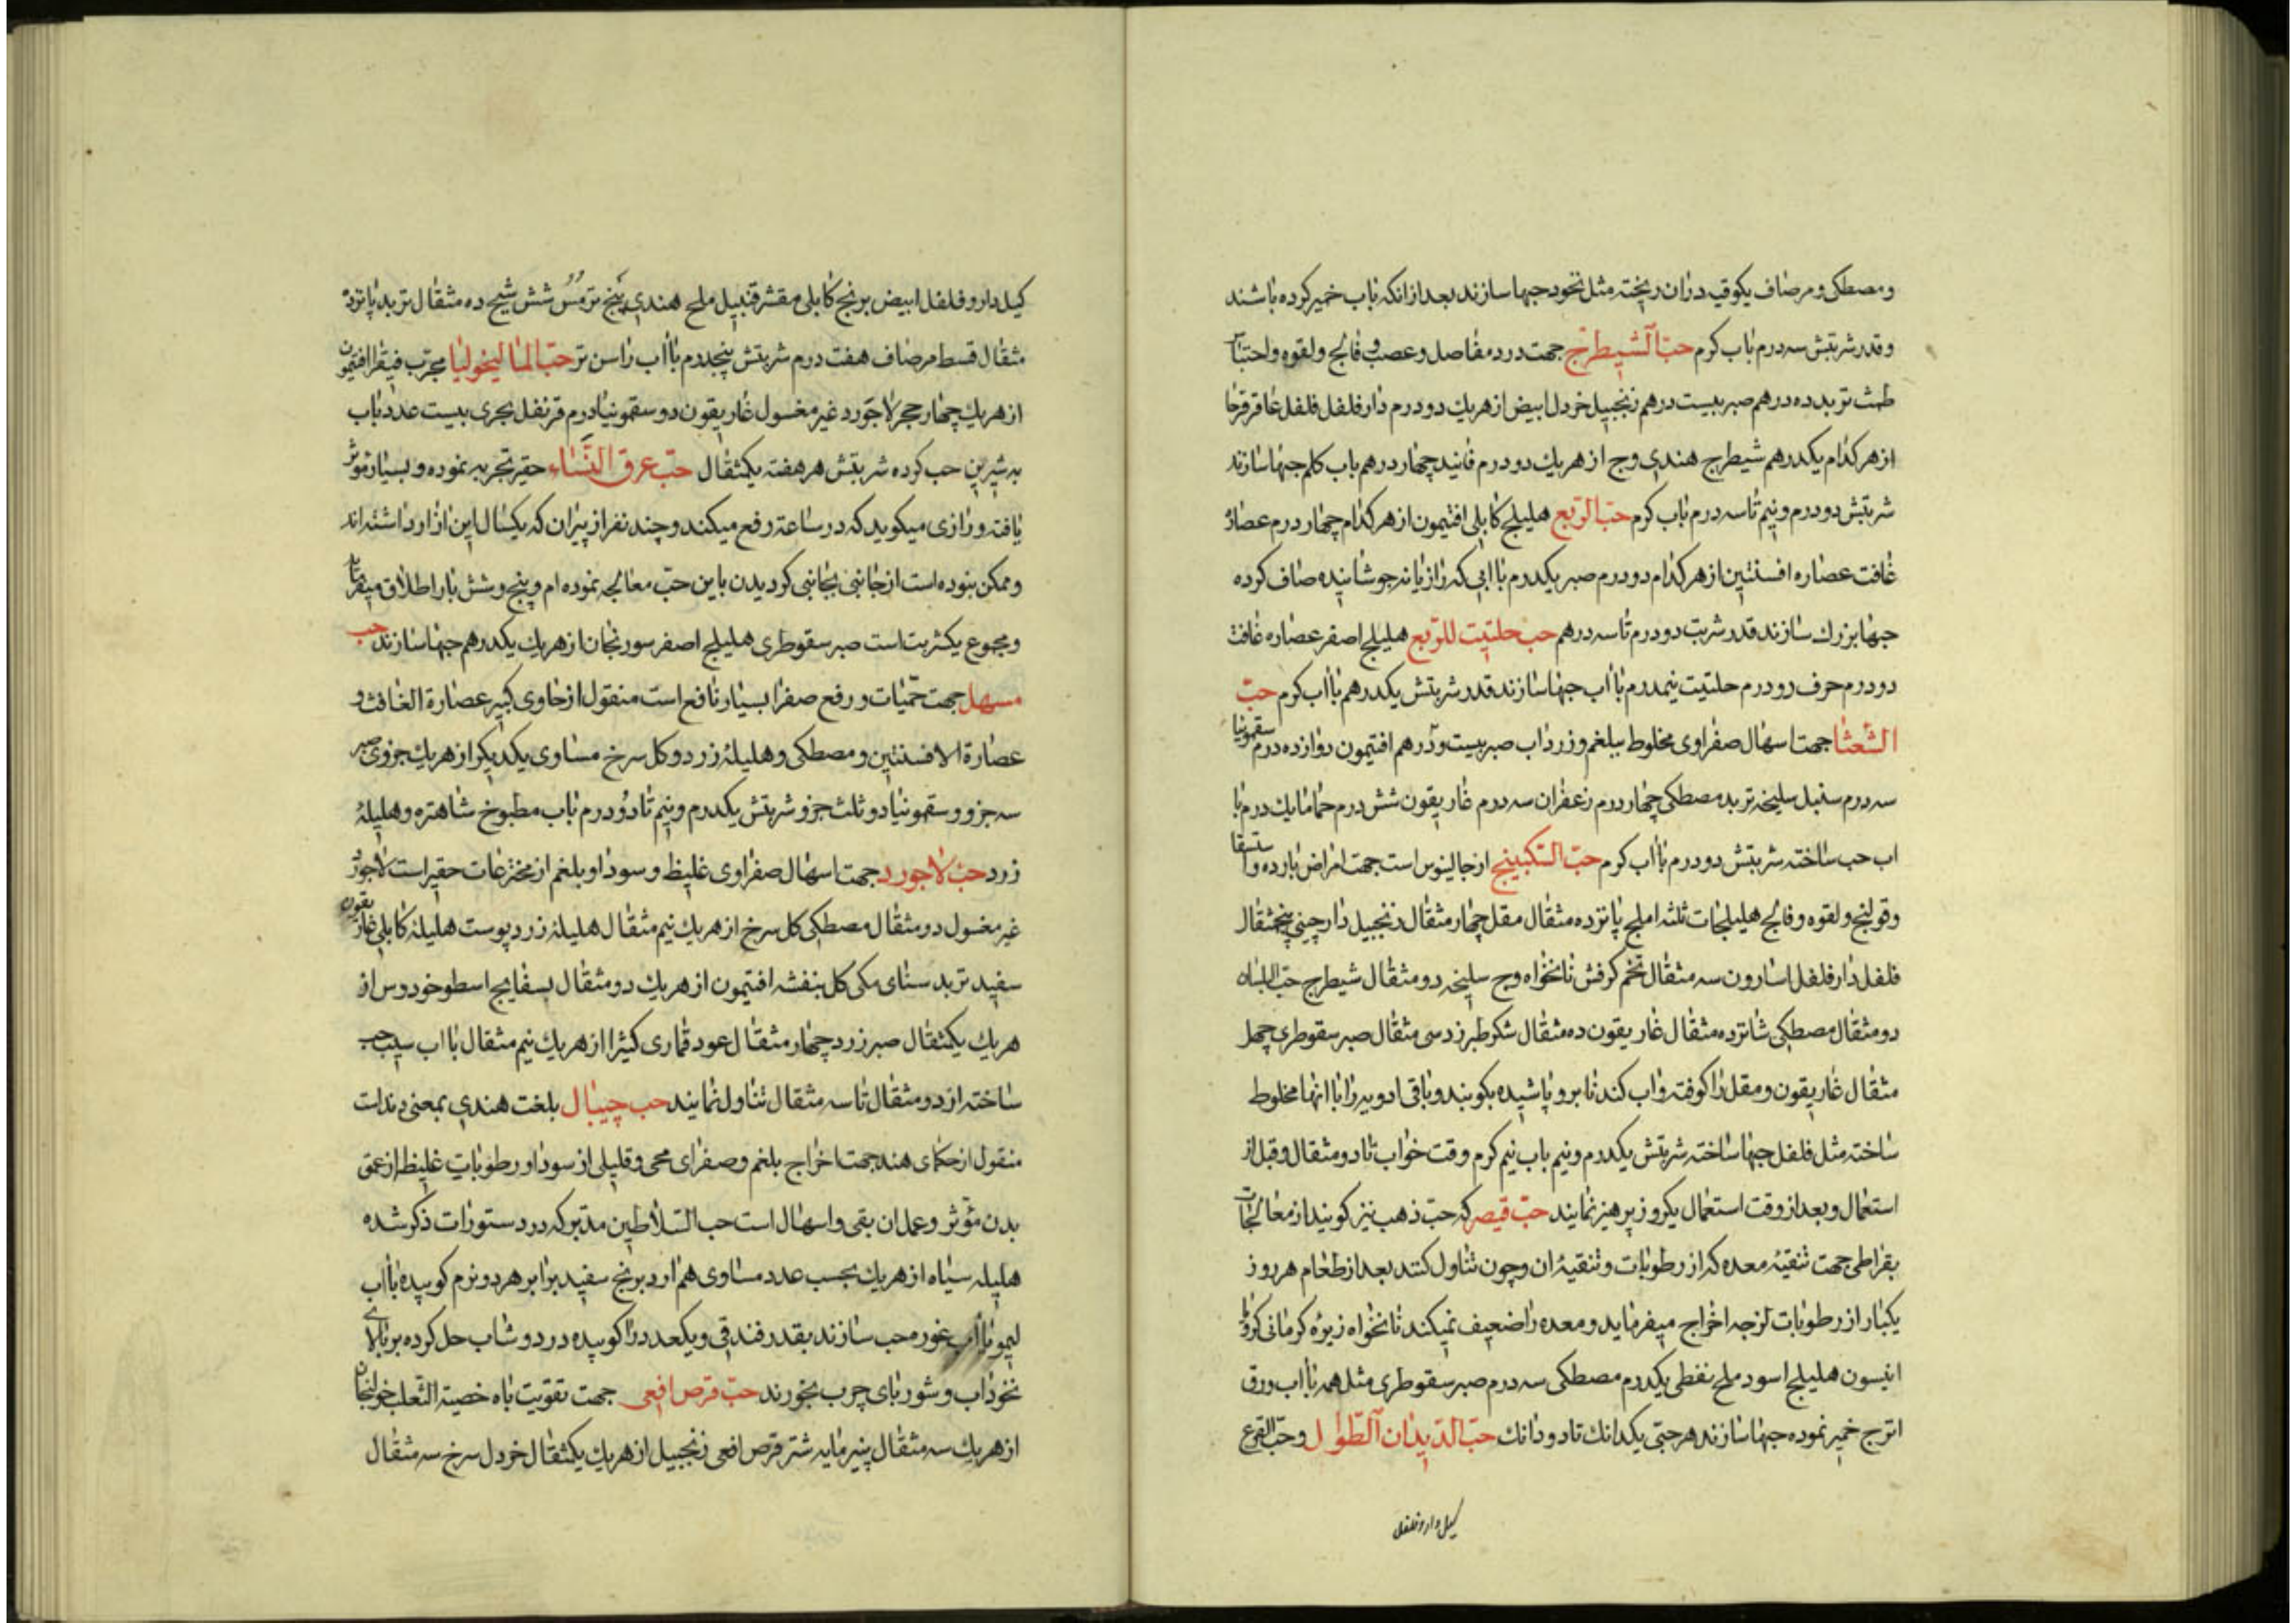 ومصطکی و مرصاف یکوقیه دران ریخته مثل نخود حبها سازند بعد ازانکه باب خمیر کرده باشند
وقدر شربتش سه درم باب کرم حبّ الشیطرج جهت درد مفاصل وعصب و فالج ولقوه واحتباس
طمث تربد ده درهم صبر بیست درهم زنجبیل خردل ابیض از هریك دودرم دارفلفل فلفل عاقرقرحا
از هر کدام یکدرهم شیطرج هندی وج از هریك دودرم فانید چهار درهم باب کلم حبها سازند
شربتش دودرم ونیم تا سه درم باب کرم حبّ الربع هلیلج کابلی افتیمون از هر کدام چهار درم عصاره
غافت عصاره افسنتین از هر کدام دودرم صبر یکدرم با ابی که رازیانه جوشانیده صاف کرده
حبها بزرك سازند قدر شربت دودرم تا سه درهم حب حلتیت للربع هلیلج اصفر عصاره غافت
دودرم حرف رودرم حلتیت نیمدرم با اب حبها سازند قدر شربتش یکدرهم با اب کرم حبّ
الشعثا جهت اسهال صفراوی مخلوط ببلغم وزرداب صبر بیست ودرهم افتیمون دوازده درم سقمونیا
سه درم سنبل سلیخه تربد مصطکی چهار درم زعفران سه درم غاریقون شش درم حماما یك درم با
اب حب ساخته شربتش دودرم با اب کرم حبّ السکبینج از جالینوس است جهت امراض بارده واستسقا
وقولنج ولقوه وفالج هلیلجات ثلثه املج پانزده مثقال مقل چهار مثقال زنجبیل دارچینی پنج مثقال
فلفل دارفلفل اسارون سه مثقال تخم کرفس نانخواه وج سلیخه دو مثقال شیطرج حبّ البلسان
دو مثقال مصطکی شانزده مثقال غاریقون ده مثقال شکر طبرزد سی مثقال صبر سقوطری چهل
مثقال غاریقون ومقل را کوفته واب کند نا برو پاشیده بکوبند وباقی ادویه را با انها مخلوط
ساخته مثل فلفل حبها ساخته شربتش یکدرم ونیم باب نیم کرم وقت خواب تا دو مثقال وقبل از
استعمال وبعد از وقت استعمال یکروز پرهیز نمایند حبّ قیصر که حبّ ذهب نیز کویند از معالجات
بقراطی جهت تنقیهٔ معده که از رطوبات وتنقیهٔ ان وچون تناول کنند بعد از طعام هر روز
یکبار از رطوبات لزجه اخراج میفرماید ومعده را ضعیف نمیکند نانخواه زیرهٔ کرمانی کرویا
انیسون هلیلج اسود ملح نفطی یکدرم مصطکی سه درم صبر سقوطری مثل همه با اب ورق
اترج خمیر نموده حبها سازند هر حبّی یکدانك تا دو دانك حبّ الدیدان الطوال وحبّ القرع
کیل دارو فلفل
کیل دارو فلفل ابیض برنج کابلی مقشر قنبیل ملح هندی پنج ترمس شش شیح ده مثقال تربد پانزده
مثقال قسط مرصاف هفت درم شربتش پنجدرم با اب راسن تر حبّ المالیخولیا مجرّب فیقرا افتیمون
از هریك چهار حجر لاجورد غیر مغسول غاریقون دو سقمونیا درم قرنفل بحری بیست عدد باب
به شیرین حب کرده شربتش هر هفته یکمثقال حبّ عرق النَّسَاء حقیر تجربه نموده وبسیار موثر
یافته ورازی میکوید که در ساعة رفع میکند وچند نفر از پیران که یکسال این ازار داشته اند
وممکن نبوده است از جانبی بجانبی کردیدن باین حبّ معالجه نموده ام وپنج وشش بار اطلاق میفرماید
ومجموع یکشربت است صبر سقوطری هلیلج اصفر سورنجان از هریك یکدرهم حبها سازند حب
مسهل جهت حمّیات ورفع صفرا بسیار نافع است منقول از حاوی کبیر عصارة الغافث و
عصارة الافسنتین ومصطکی وهلیلهٔ زرد وکل سرخ مساوی یکدیکر از هریك جزوی صبر
سه جزو وسقمونیا دو ثلث جزو شربتش یکدرم ونیم تا دودرم باب مطبوخ شاهتره وهلیلهٔ
زرد حبّ لاجورد جهت اسهال صفراوی غلیظ وسودا وبلغم از مخترعات حقیر است لاجورد
غیر مغسول دو مثقال مصطکی کل سرخ از هریك نیم مثقال هلیلهٔ زرد پوست هلیلهٔ کابلی غاریقون
سفید تربد سنای مکی کل بنفشه افتیمون از هریك دو مثقال بسفایج اسطوخودوس از
هریك یکمثقال صبر زرد چهار مثقال عود قماری کثیرا از هریك نیم مثقال با اب سیب حب
ساخته از دو مثقال تا سه مثقال تناول نمایند حب جیبال بلغت هندی بمعنی دندات
منقول از حکمای هند جهت اخراج بلغم وصفرای محی وقلیلی از سودا ورطوبات غلیظ از عمق
بدن مؤثر وعمل ان بقی واسهال است حب السلاطین مدبر که در دستورات ذکر شده
هلیله سیاه از هریك بحسب عدد مساوی هم ارد برنج سفید برابر هر دو نرم کوبیده با اب
لیمو یا اب غوره حب سازند بقدر فندقی ویکعدد را کوبیده در دوشاب حل کرده بر بالای
نخوداب وشوربای چرب بخورند حبّ قرص افعی جهت تقویت باه خصیة الثعلب خولنجان
از هریك سه مثقال پنیر مایه شتر قرص افعی زنجبیل از هریك یکمثقال خردل سرخ سه مثقال